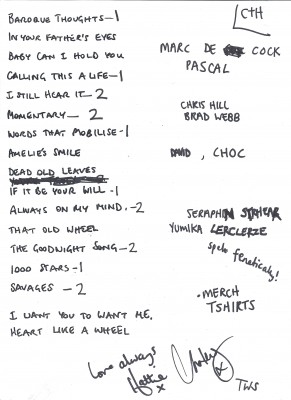 CTH
BAROQUE THOUGHTS-1
IN YOUR FATHER'S EYES
BABY CAN I HOLD YOU
CALLING THIS A LIFE-1
I STILL HEAR IT-2
MOMENTARY-2
WORDS THAT MOBILISE-1
AMELIE'S SMILE
DEAD OLD LEAVES
IF IT BE YOUR WILL-1
ALWAYS ON MY MIND.-2
THAT OLD WHEEL
THE GOODNIGHT SONG-2
1000 STARS-1
SAVAGES-2
I WANT YOU TO WANT ME.
HEART LIKE A WHEEL
MARC DE COCK
PASCAL
CHRIS HILL
BRAD WEBB
DAVID, CHOC
SERAPHIN
YUMIKA LERCLERZE
spelt fenetically!
·MERCH
TSHIRTS
Love always
Hattie x
x
TWS